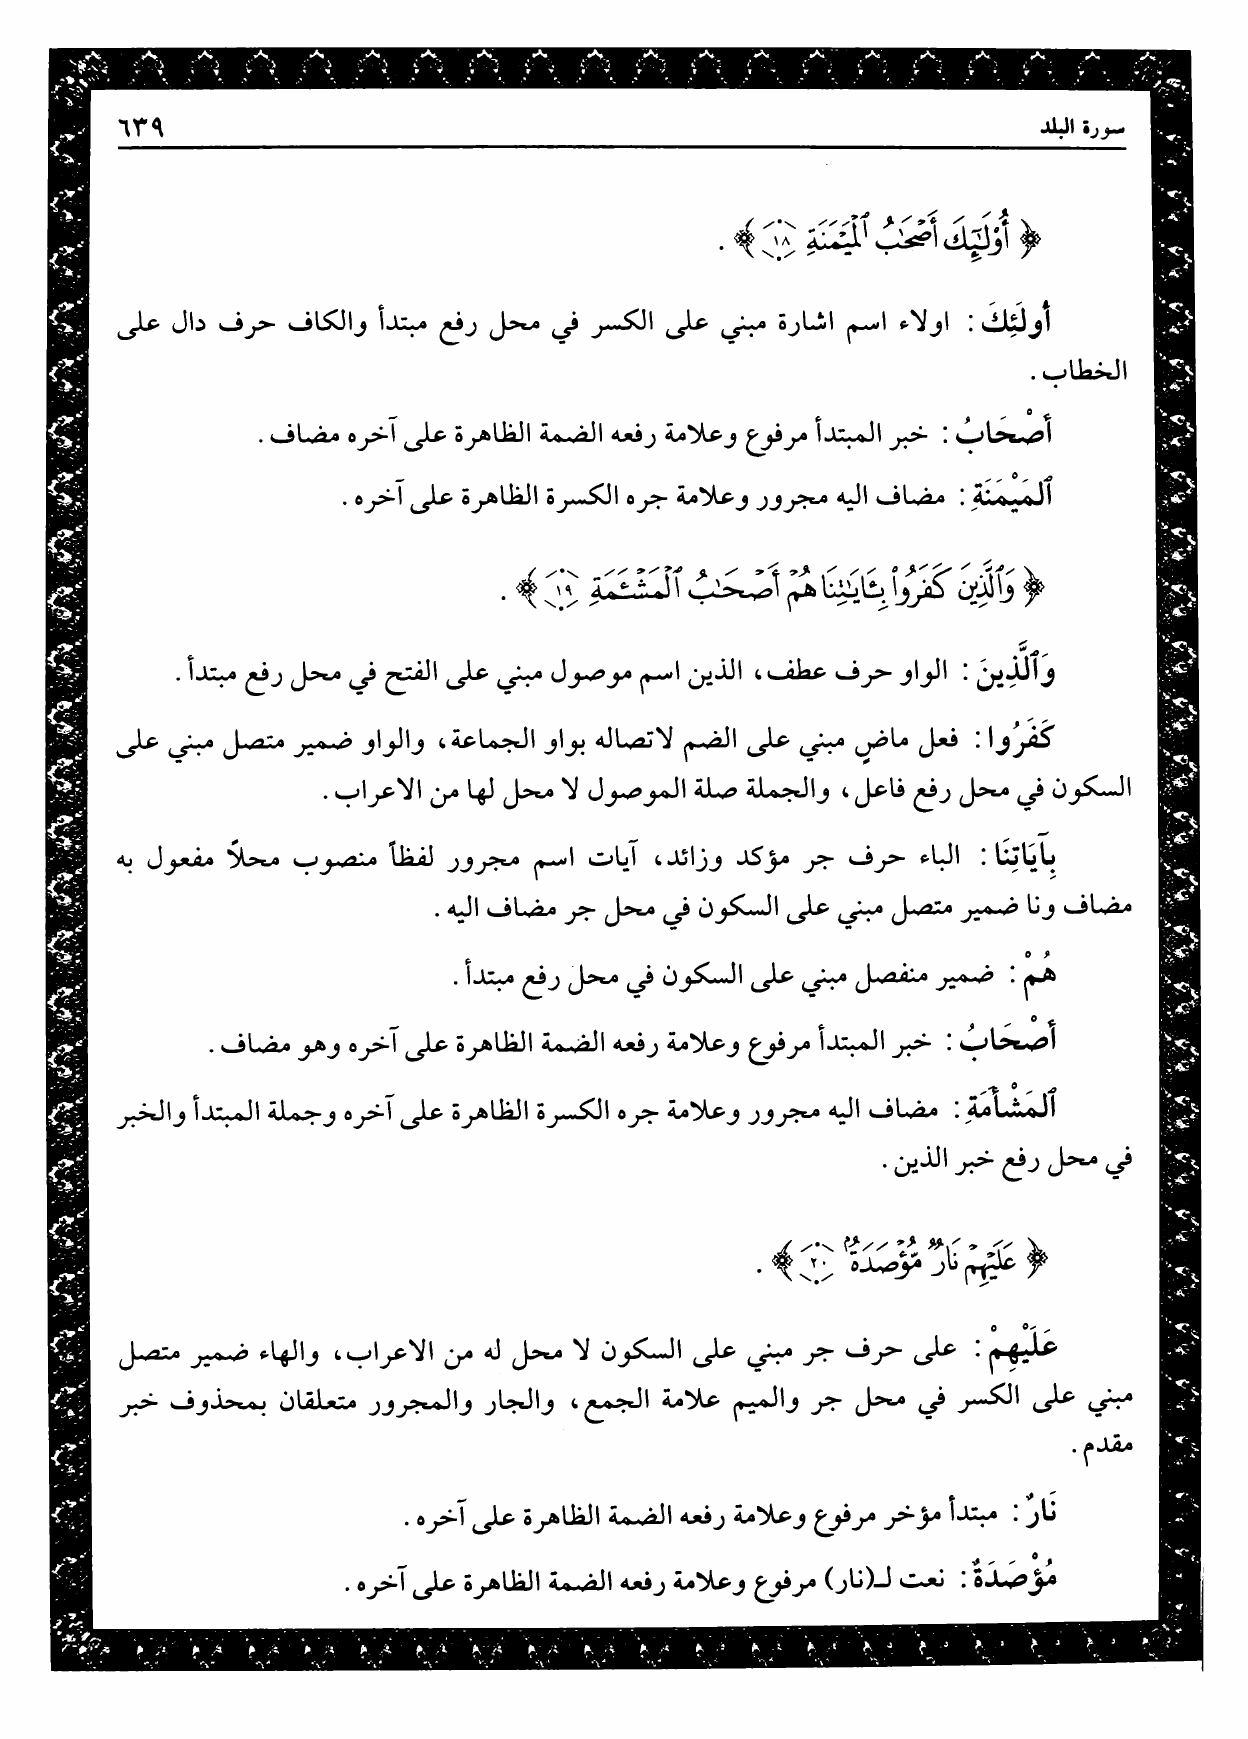 سورة البلد ٦٣٩
﴿ أُوْلَٰٓئِكَ أَصْحَٰبُ ٱلْمَيْمَنَةِ ١٨ ﴾ .
أُولَئِكَ : اولاء اسم اشارة مبني على الكسر في محل رفع مبتدأ والكاف حرف دال على
الخطاب .
أَصْحَابُ : خبر المبتدأ مرفوع وعلامة رفعه الضمة الظاهرة على آخره مضاف .
ٱلمَيْمَنَةِ : مضاف اليه مجرور وعلامة جره الكسرة الظاهرة على آخره .
﴿ وَٱلَّذِينَ كَفَرُواْ بِـَٔايَٰتِنَا هُمْ أَصْحَٰبُ ٱلْمَشْـَٔمَةِ ١٩ ﴾ .
وَٱلَّذِينَ : الواو حرف عطف، الذين اسم موصول مبني على الفتح في محل رفع مبتدأ .
كَفَرُوا : فعل ماضٍ مبني على الضم لاتصاله بواو الجماعة، والواو ضمير متصل مبني على
السكون في محل رفع فاعل، والجملة صلة الموصول لا محل لها من الاعراب .
بِآيَاتِنَا : الباء حرف جر مؤكد وزائد، آيات اسم مجرور لفظاً منصوب محلاً مفعول به
مضاف ونا ضمير متصل مبني على السكون في محل جر مضاف اليه .
هُمْ : ضمير منفصل مبني على السكون في محل رفع مبتدأ .
أَصْحَابُ : خبر المبتدأ مرفوع وعلامة رفعه الضمة الظاهرة على آخره وهو مضاف .
ٱلمَشْأَمَةِ : مضاف اليه مجرور وعلامة جره الكسرة الظاهرة على آخره وجملة المبتدأ والخبر
في محل رفع خبر الذين .
﴿ عَلَيْهِمْ نَارٌ مُّؤْصَدَةٌ ٢٠ ﴾ .
عَلَيْهِمْ : على حرف جر مبني على السكون لا محل له من الاعراب، والهاء ضمير متصل
مبني على الكسر في محل جر والميم علامة الجمع، والجار والمجرور متعلقان بمحذوف خبر
مقدم .
نَارٌ : مبتدأ مؤخر مرفوع وعلامة رفعه الضمة الظاهرة على آخره .
مُؤْصَدَةٌ : نعت لـ(نار) مرفوع وعلامة رفعه الضمة الظاهرة على آخره .